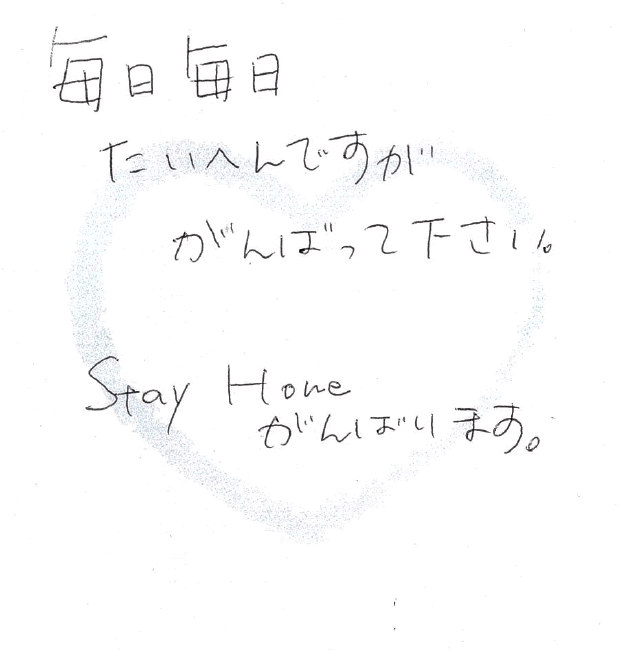 毎日毎日
たいへんですが
がんばって下さい。
Stay Home
がんばります。